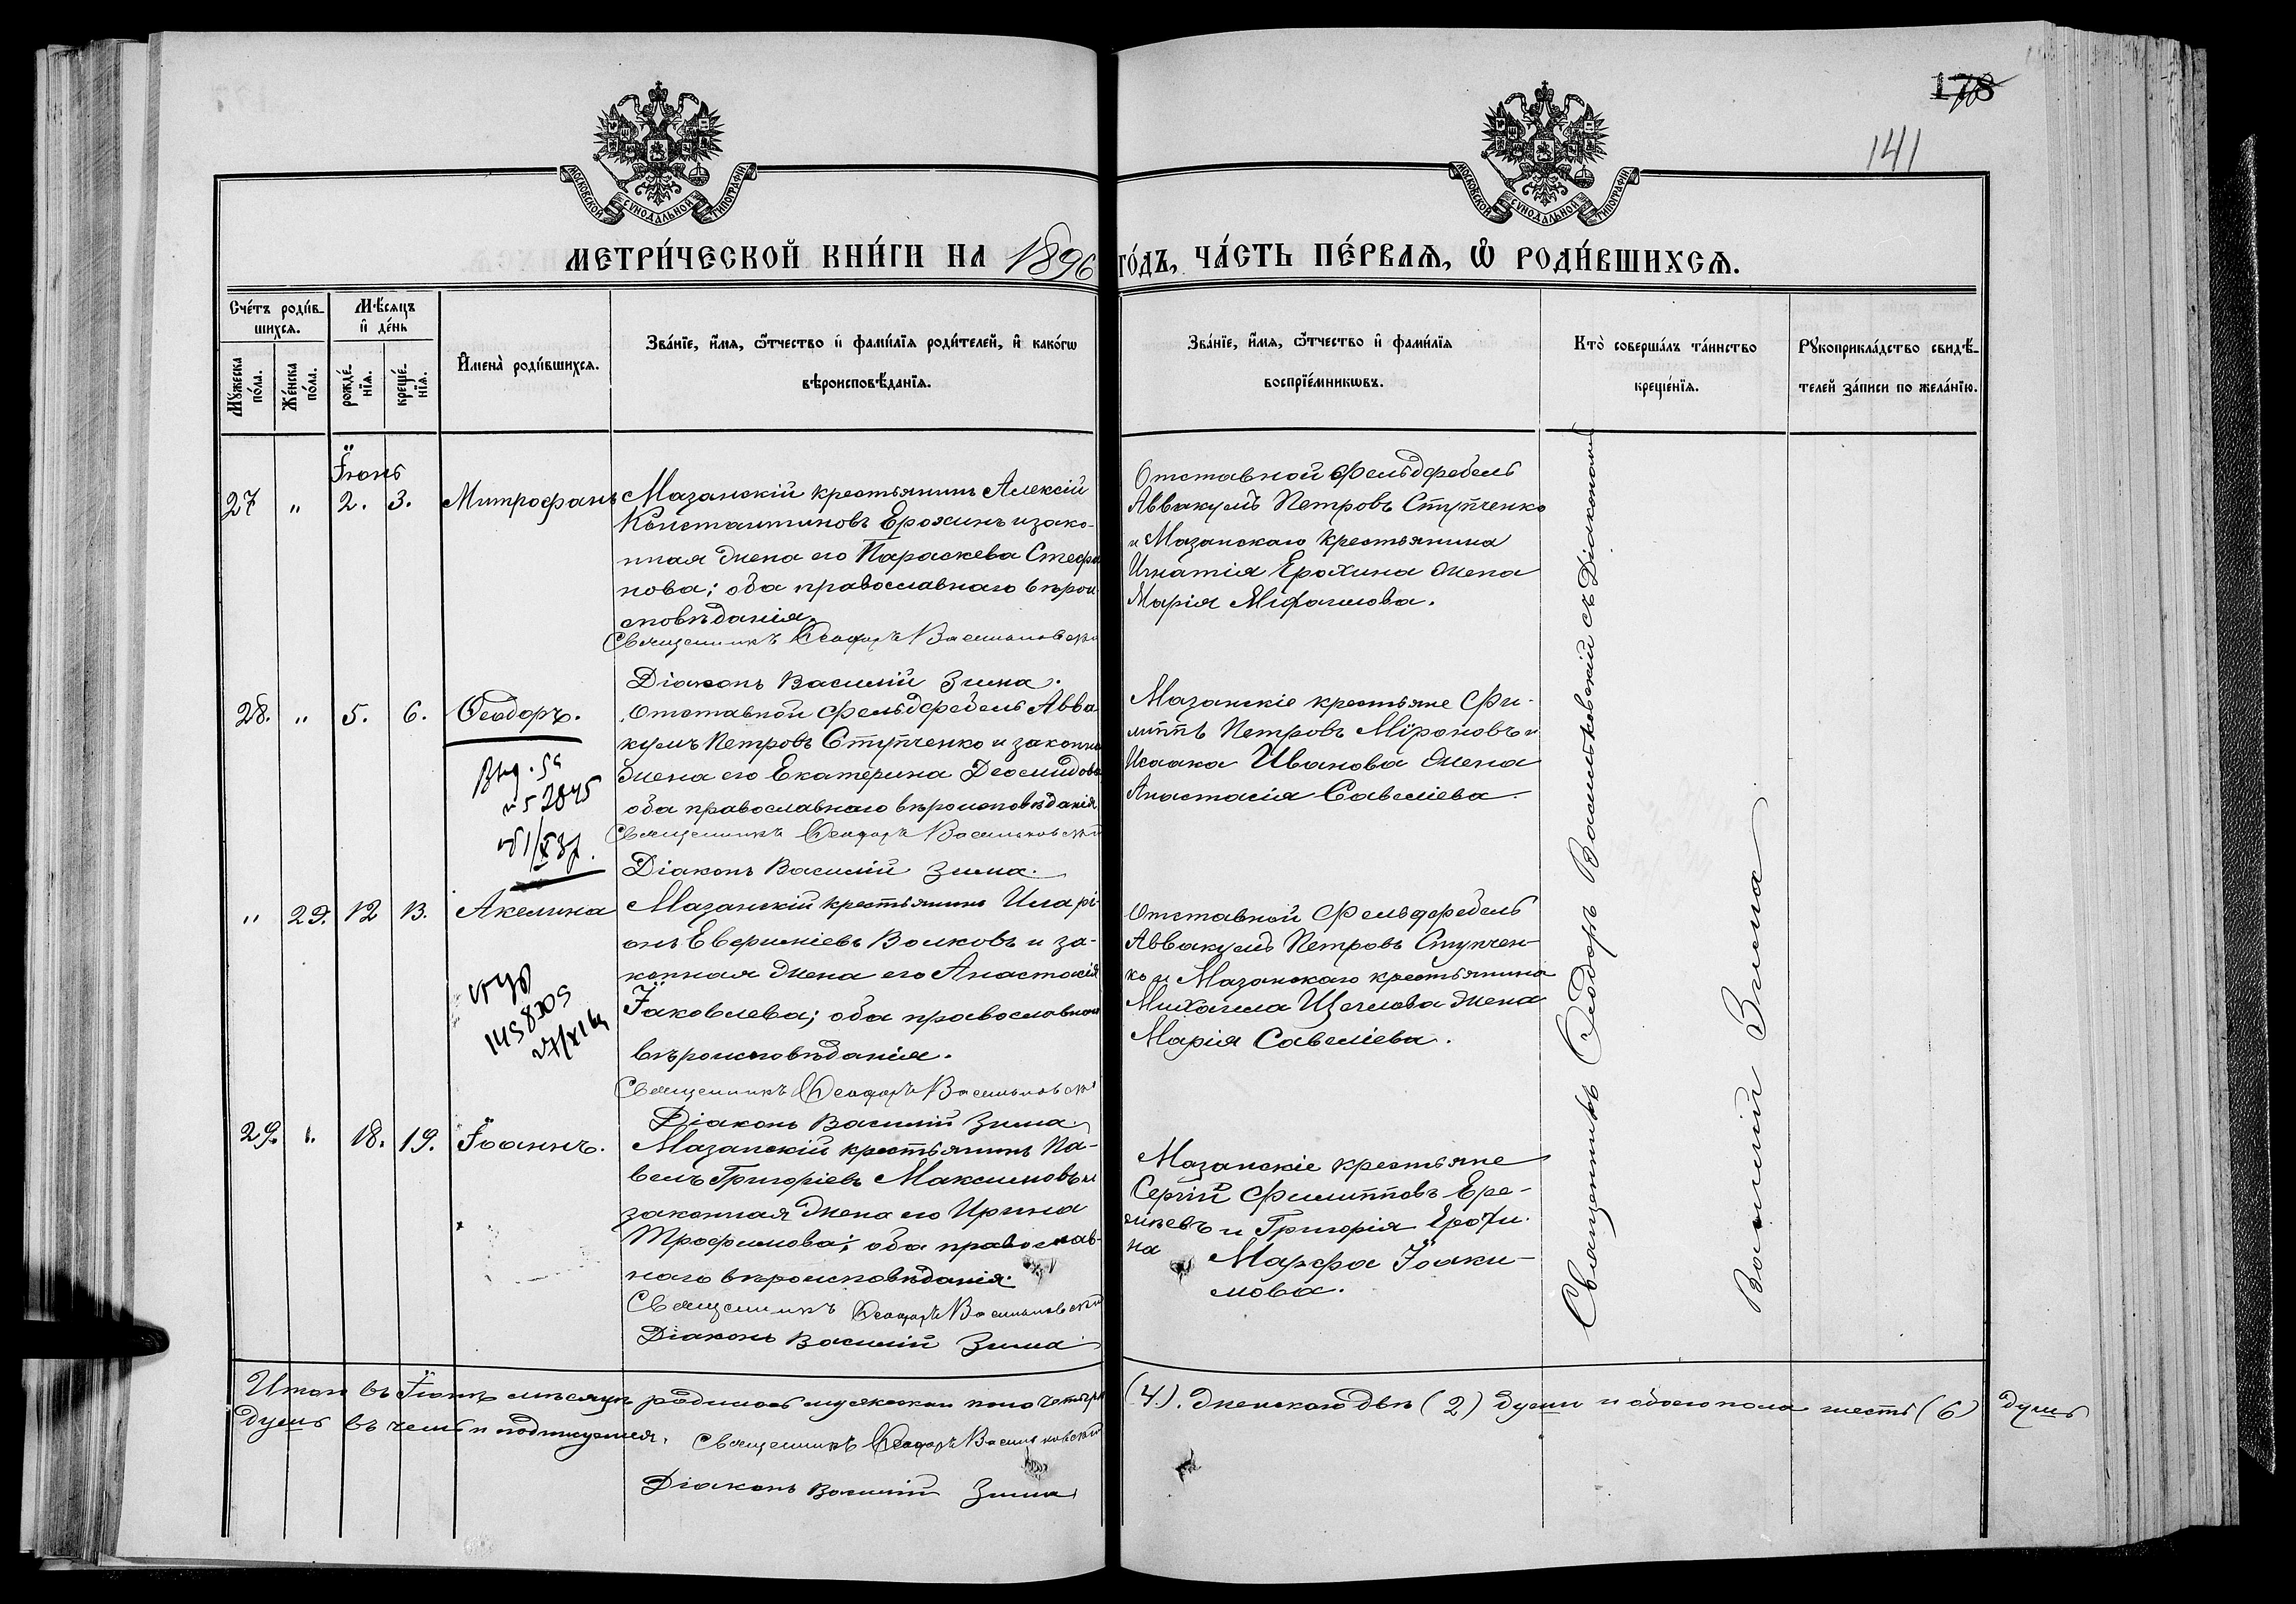 178
141
МОСКОВСКОЙ СѴНОДАЛЬНОЙ ТИПОГРАФІИ
МОСКОВСКОЙ СѴНОДАЛЬНОЙ ТИПОГРАФІИ
МЕТРИ́ЧЕСКОЙ КНИ́ГИ НА 1896 ГО́ДЪ, ЧА́СТЬ ПЕ́РВАѦ, Ѡ РОДИ́ВШИХСѦ.
Сче́тъ роди́в-
шихсѧ.
Мꙋ́жеска
по́ла.
Же́нска
по́ла.
Мѣ́сѧцъ
и҆ де́нь
рожде́-
нїѧ.
креще́-
нїѧ.
И҆мена̀ роди́вшихсѧ.
Зва́нїе, и҆́мѧ, ѻ҆́тчество и҆ фами́лїѧ роди́телей, и҆ како́гѡ
вѣроисповѣ́данїѧ.
Зва́нїе, и҆́мѧ, ѻ҆́тчество и҆ фами́лїѧ
воспрїе́мникѡвъ.
Кто̀ соверша́лъ та́инство
креще́нїѧ.
Рꙋкоприкла́дство свидѣ́-
телей за́писи по жела́нїю.
Іюнь
27 " 2. 3. Митрофанъ
Мазанскій крестьянинъ Алексій
Константиновъ Ерохинъ и зако-
нная жена его Параскева Стефа
нова; оба православнаго вѣрои
сповѣданія.
Священникъ Ѳеодоръ Васильковскій
Діаконъ Василій Зима.
Отставной Фельдфебель
Аввакумъ Петровъ Ступченко
и Мазанскаго крестьянина
Игнатія Ерохина жена
Марія
28. " 5. 6. Ѳеодоръ.
Отставной Фельдфебель Авва
кумъ Петровъ Ступченко и законна
жена его Екатерина Діомидова
оба православнаго вѣроисповѣданія
Священникъ Ѳеодоръ Васильковскій
Діаконъ Василій Зима.
Мазанскіе крестьяне Фи-
липпъ Петровъ Мѵроновъ и
Исаака Иванова жена
Анастасія Савеліева.
" 29. 12 13. Акелина
Мазанскій крестьянинъ Иларі-
онъ Евфиміевъ Волковъ и за-
конная жена его Анастасія
Іаковлева; оба православнаго
вѣроисповѣданія.
Священникъ Ѳеодоръ Васильковскій
Діаконъ Василій Зима.
Отставной Фельдфебель
Аввакумъ Петровъ Ступчен-
ко и Мазанскаго крестьянина
Михаила Щеглова жена
Марія Савеліева.
29. ". 18. 19. Іоаннъ.
Мазанскій крестьянинъ Па-
велъ Григоріевъ Максимовъ и
законная жена его Ирина
Трофимова; оба православ-
наго вѣроисповѣданія.
Священникъ Ѳеодоръ Васильковскій
Діаконъ Василій Зима
Мазанскіе крестьяне
Сергій Филипповъ Ере-
мѣевъ и Григорія Ерохи-
на Марфа Іоаки-
мова.
Священникъ Ѳеодоръ Васильковскій съ Діакономъ
Василій Зима
Итого въ Іюнѣ мѣсяцѣ родилось мужескаго пола четыре (4). Женскаго двѣ (2) души и обоего пола шесть (6) душъ
душъ въ чемъ и подписуемся. Священникъ Ѳеодоръ Васильковскій
Діаконъ Василій Зима